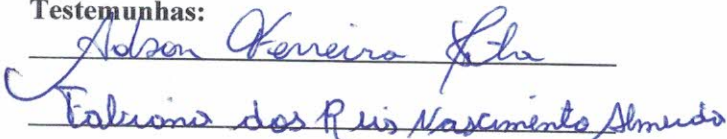 Testemunhas:
Adson Ferreira
Fabiano dos Reis Nascimento Almeida